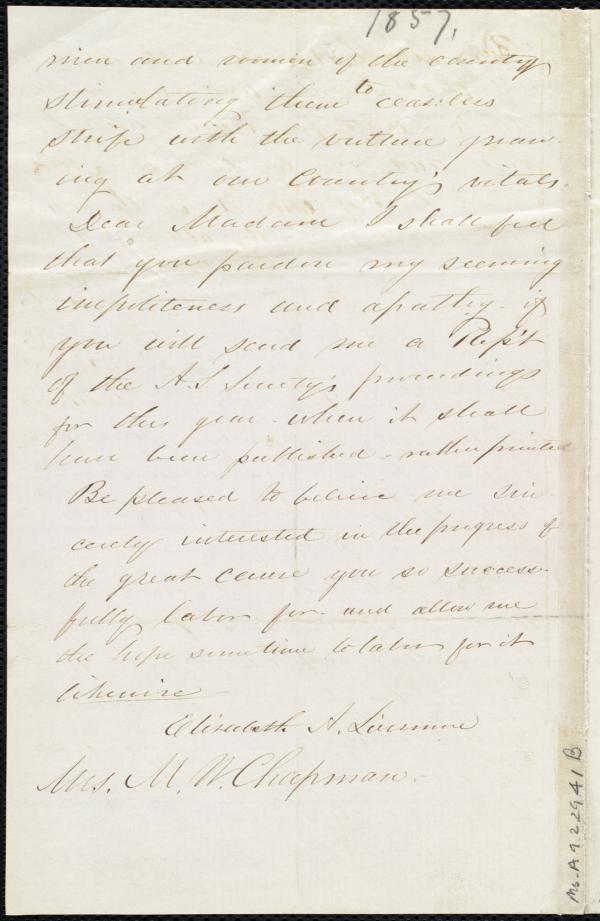 1857.
men and women of the county
stimulating them to ceaseless
strife with the vulture gnaw-
ing at our Country's vitals.
Dear Madam I shall feel
that you pardon my seeming
impoliteness and apathy - if
you will send me a Rep't
of the A.S Society's proceedings
for this year - when it shall
have been published - rather printed
Be pleased to believe me sin
cerely interested in the progress of
the great cause you so success-
fully labor for - and allow me
the hope sometime to labor for it
likewise -
Elizabeth A. Livermore
Mrs. M. W. Chapman.
Ms. A 9.2 29.41 B